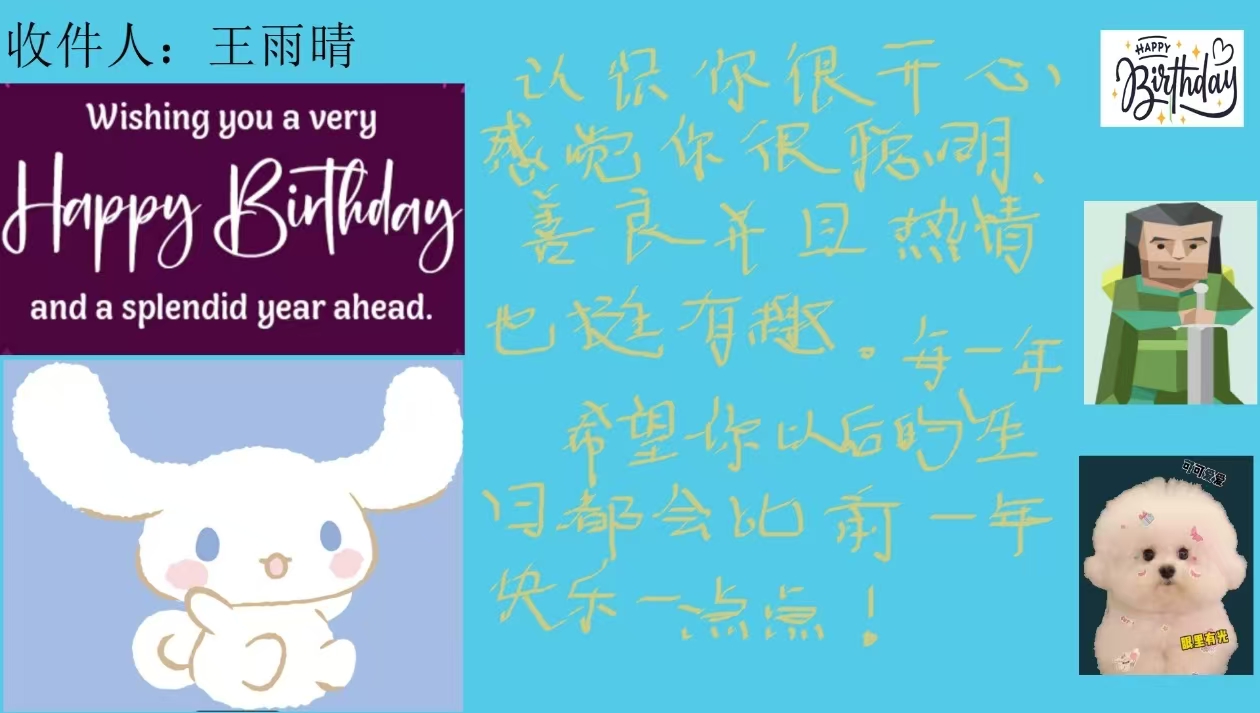 收件人：王雨晴
Wishing you a very
Happy Birthday
and a splendid year ahead.
认识你很开心，
感觉你很聪明、
善良并且热情
也挺有趣。
每一年
希望你以后的生
日都会比前一年
快乐一点点！
HAPPY
Birthday
可可爱爱
眼里有光